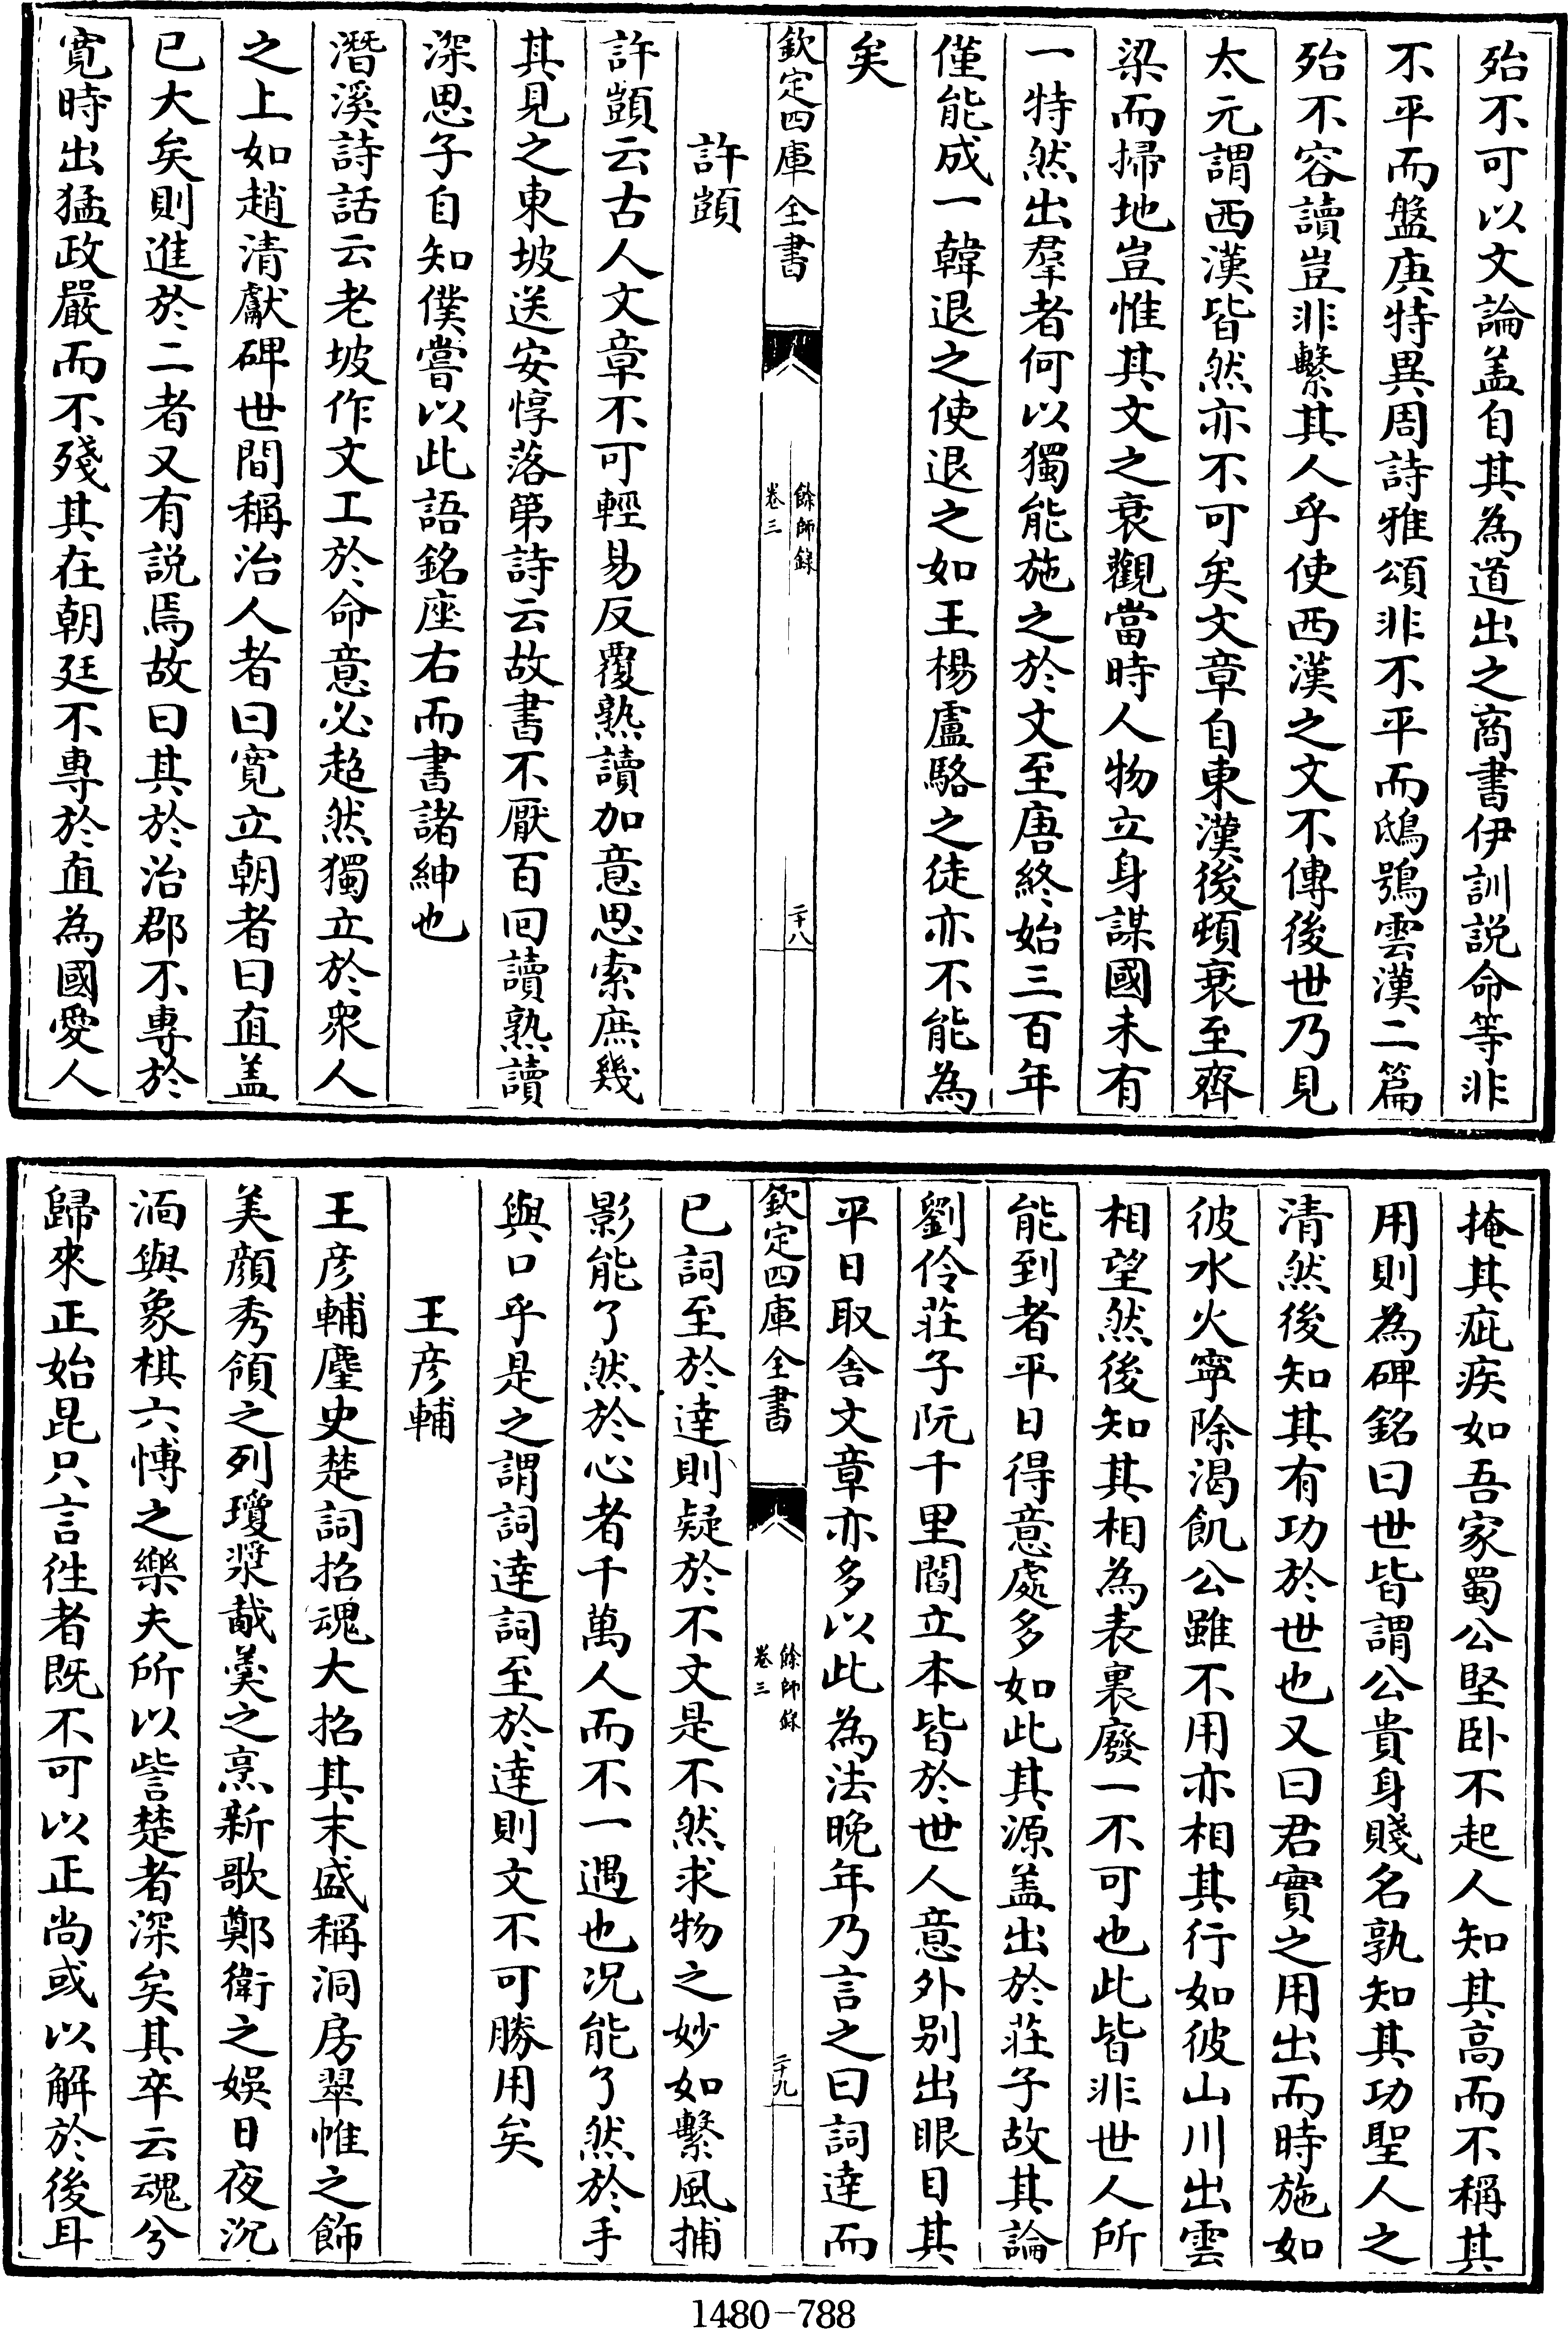 殆不可以文論盖自其為道出之商書伊訓説命等非
不平而盤庚特異周詩雅頌非不平而鴟鴞雲漢二篇
殆不容讀豈非繫其人乎使西漢之文不傳後世乃見
太元謂西漢皆然亦不可矣文章自東漢後頓衰至齊
梁而掃地豈惟其文之衰觀當時人物立身謀國未有
一特然出羣者何以獨能施之於文至唐終始三百年
僅能成一韓退之使退之如王楊盧駱之徒亦不能為
矣
欽定四庫全書
餘師錄
卷三
二十八
許顗
許顗云古人文章不可輕易反覆熟讀加意思索庶幾
其見之東坡送安惇落第詩云故書不厭百回讀熟讀
深思子自知僕嘗以此語銘座右而書諸紳也
潛溪詩話云老坡作文工於命意必超然獨立於衆人
之上如趙清獻碑世間稱治人者曰寛立朝者曰直盖
已大矣則進於二者又有説焉故曰其於治郡不專於
寛時出猛政嚴而不殘其在朝廷不專於直為國愛人
掩其疵疾如吾家蜀公堅卧不起人知其高而不稱其
用則為碑銘曰世皆謂公貴身賤名孰知其功聖人之
清然後知其有功於世也又曰君實之用出而時施如
彼水火寧除渴飢公雖不用亦相其行如彼山川出雲
相望然後知其相為表裏廢一不可也此皆非世人所
能到者平日得意處多如此其源盖出於莊子故其論
劉伶莊子阮千里閻立本皆於世人意外别出眼目其
平日取舍文章亦多以此為法晚年乃言之曰詞達而
欽定四庫全書
餘師錄
卷三
二十九
已詞至於達則疑於不文是不然求物之妙如繫風捕
影能了然於心者千萬人而不一遇也况能了然於手
與口乎是之謂詞達詞至於達則文不可勝用矣
王彦輔
王彦輔麈史楚詞招魂大招其末盛稱洞房翠帷之飾
美顔秀領之列瓊漿胾羮之烹新歌鄭衛之娛日夜沉
湎與象棋六愽之樂夫所以訾楚者深矣其卒云魂兮
歸來正始昆只言徃者既不可以正尚或以解於後耳
1480-788